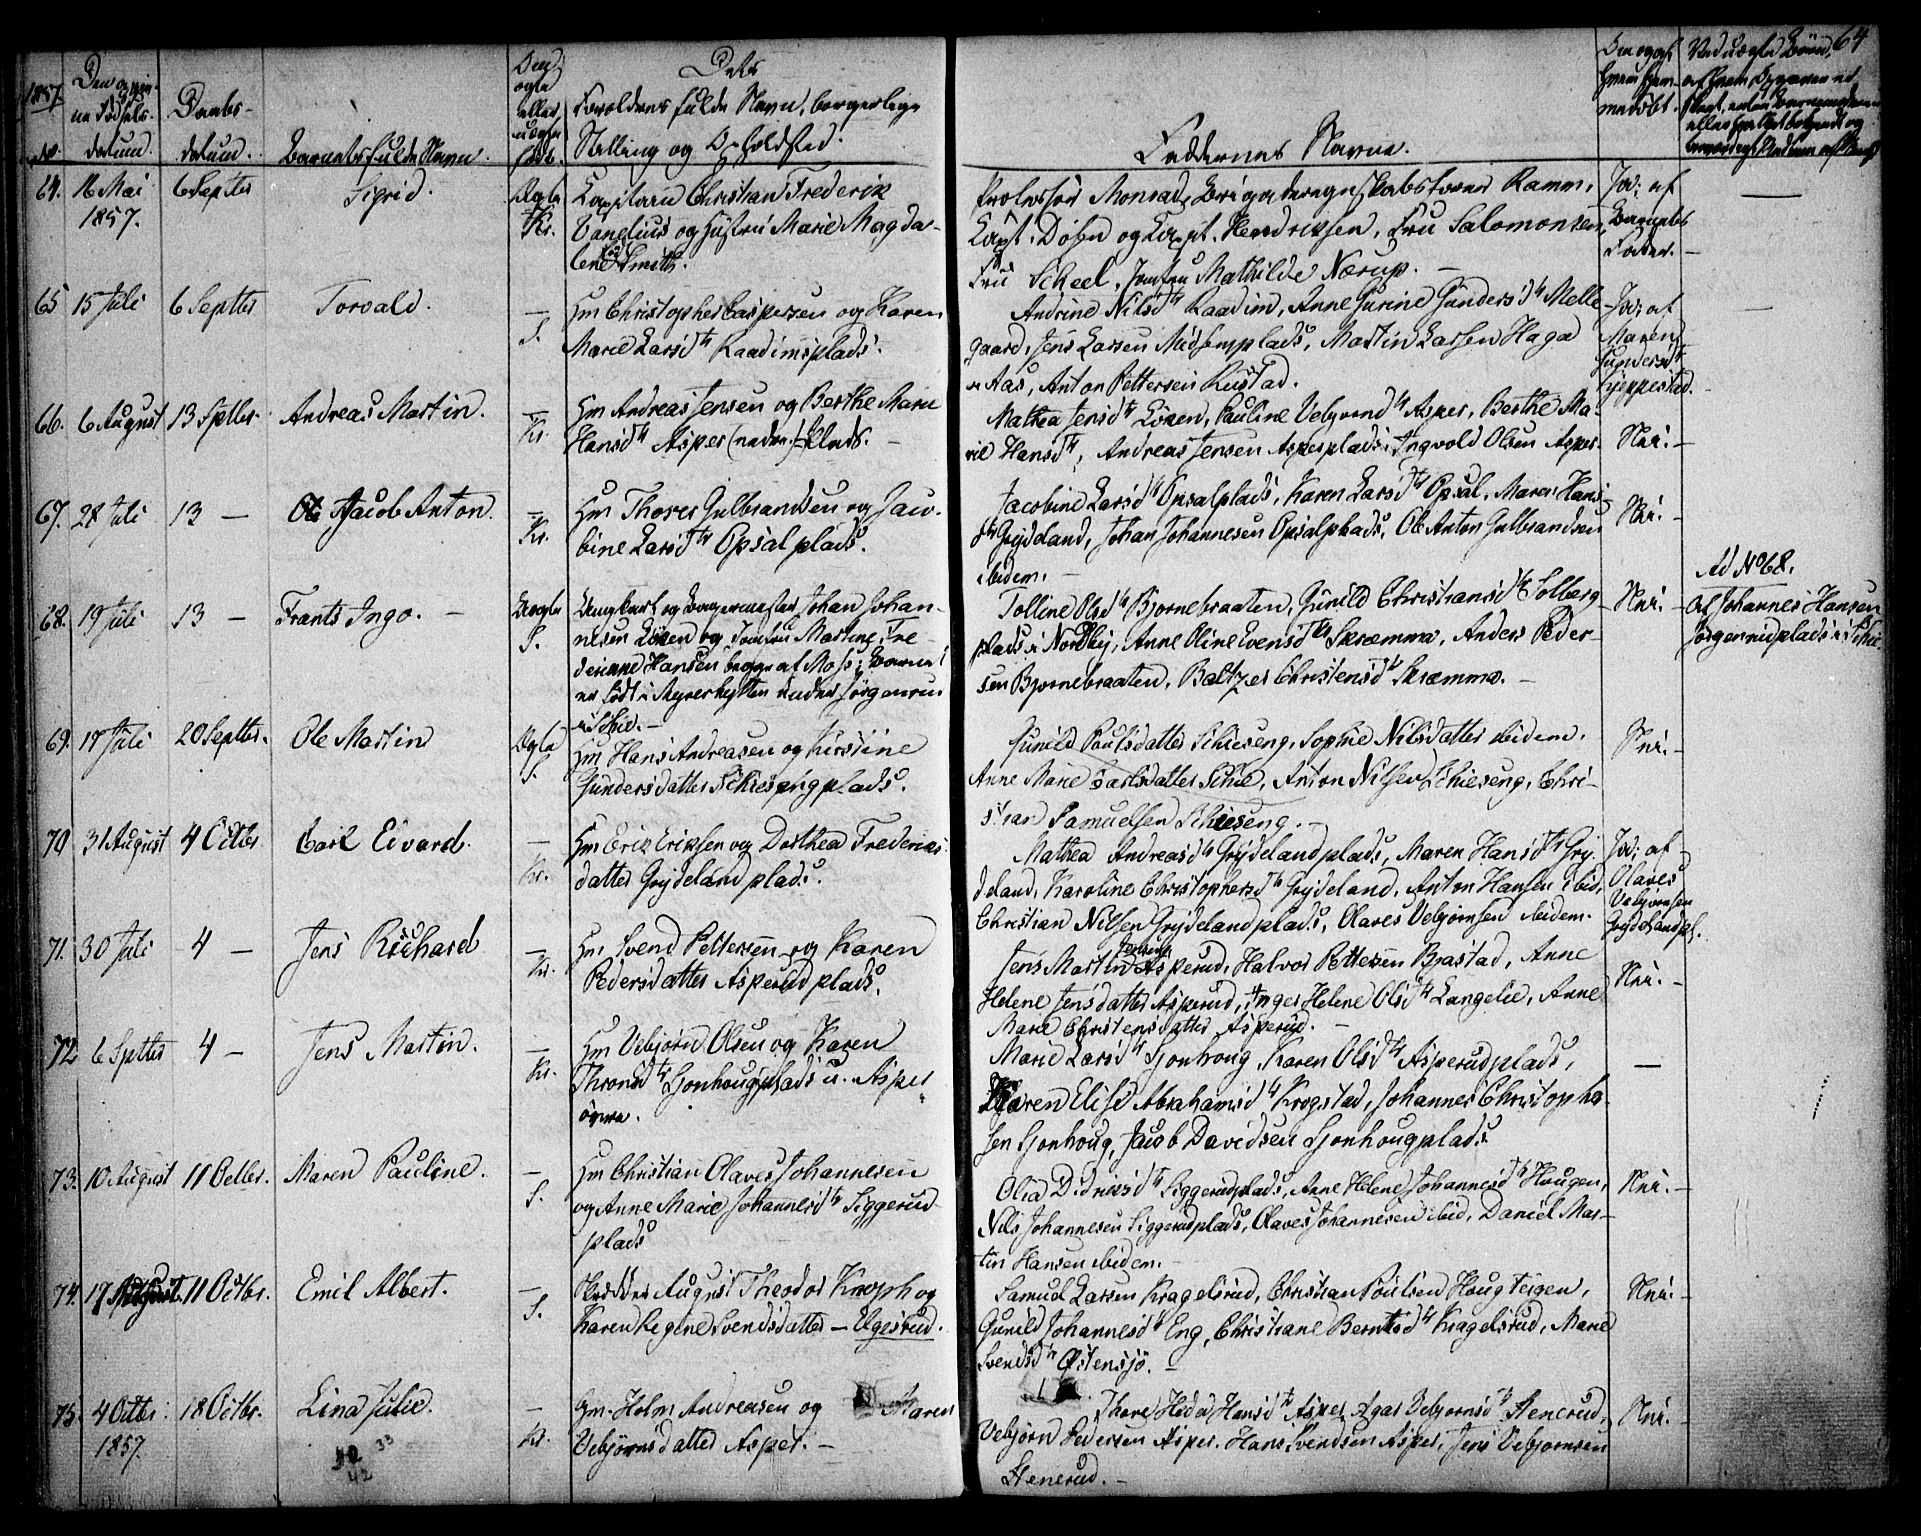 64
1857.
Den angivne Fødsels-datum.
Daabs-datum.
Barnets fulde Navn.
Om ægte eller uægte født.
Dets
Forældres fulde Navn, borgerlige
Stilling og Opholdsted.
Faddernes Navne.
64. 16 Mai 1857. 6 Septbr Sigrid. Ægte Kr.
Capitain Christian Frederik
Vangelius og Hustru Marie Magda-
lene fød Smith.
Professor Monrad, Brigaderegnskabsfører Ramm,
Capt. Døsen og Capt. Hendriksen, Fru Salomonsen,
Fru Scheel, Jomfru Mathilde Nærup. —
Ja; af
Barnets
Fader. —
65 15 Juli 6 Septbr Torvald. — S.
Hm Christopher Caspersen og Karen
Marie Larsdtr Raadimsplads.
Andrine Nilsdtr Raadim, Anne Gurine Gundersdtr Melle-
gaard, Jens Larsen Midsemplads, Martin Larsen Haga
i Aas, Anton Pettersen Rustad.
Ja; af
Maren
Gundersdtr
Kjeppestad.
66. 6 August 13 Septbr. Andreas Martin. — Kr.
Hm Andreas Jensen og Berthe Marie
Hansdtr Asper (nedre) plads. —
Mathea Jensdtr Løren, Pauline Vebjørnsdtr Asper, Berthe Ma-
rie Hansdtr, Andreas Jensen Aspersplads, Ingvold Olsen Asper.
Nei. —
67. 28 Juli 13 — Jacob Anton. — Kr.
Hm Thorer Gulbrandsen og Jaco-
bine Larsdtr Opsalplads.
Jacobine Larsdtr Opsalplads, Karen Larsdtr Opsal, Maren Hans-
dtr Grydeland, Johan Johannesen Opsalplads, Ole Anton Gulbrandsen
ibidem. —
Nei. —
68. 19 Juli 13 — Frants Ingo. — Uægte S.
Ungkarl og Borgermester Johan Johan-
nesen Løren og Jomfru Martine Fre-
derikke Hansen begge af Moss; Barnet
er født i Myrerhytten under Jørgenrud
i Schie. —
Tolline Olsdtr Bjørnebraaten, Gunild Christiansdtr Solberg-
plads i Nordby, Anne Oline Evensdtr Skræmma, Anders Peder-
sen Bjørnebraaten, Baltzer Christensdtr Skræmma. —
Nei. —
Ad No 68.
Af Johannes Hansen
Jørgenrudplads i Schie.
69. 17 Juli 20 Septbr. Ole Martin Ægte S.
Hm Hans Andreasen og Kirstine
Gundersdatter Schiesengplads.
Gunild Poulsdatter Schieseng, Sophie Nilsdatter ibidem.
Anne Marie Carlsdatter Schie, Anton Nilsen Schieseng, Chri-
stian Samuelsen Schieseng. —
Nei. —
70 31 August 4 Octbr Carl Edvard. — Kr.
Hm Erik Eriksen og Dorthea Frederiks-
datter Grydelandplads.
Mathea Andreasdtr Grydelandplads, Maren Hansdtr Gry-
deland, Karoline Christophersdtr Grydeland, Anton Hansen ibid,
Christian Nilsen Grydelandplads, Olaves Vebjørnsen ibidem.
Ja; af
Olaves
Vebjørnsen
Grydelandpl.
71. 30 Juli 4 — Jens Richard — Kr.
Hm Svend Pettersen og Karen
Pedersdatter Asperudplads.
Jens Martin Jensen Asperud, Halvor Pettersen Bjastad, Anne
Helene Jensdatter Asperud, Inger Helene Olsdtr Langelie, Anne
Marie Christensdatter Asperud. —
Nei. —
72 6 Septbr 4 — Jens Martin. — Kr.
Hm Vebjørn Olsen og Karen
Thronsdtr Sjonhougplads u. Asper
øvre.
Marie Larsdtr Sjonhoug, Karen Olsdtr Asperudplads,
Karen Elise Abrahamsdtr Krogstad, Johannes Christopher-
sen Sjonhoug, Jacob Davidsen Sjonhougplads
—
73. 10 August 11 Octbr. Maren Pauline. — S.
Hm Christian Olaves Johannesen
og Anne Marie Johannesdtr Siggerud-
plads
Olia Didriksdtr Siggerudplads, Anne Helene Johannesdtr Haugen,
Nils Johannesen Siggerudplads, Olaves Johannesen ibid, Daniel Mar-
tin Hansen ibidem. —
Nei. —
74. 17 August 11 Octbr. Emil Albert. — S.
Skrædder August Theodor Knoph og
Karen Regine Svendsdatter — Elgesrud.
Samuel Larsen Kragelsrud, Christian Poulsen Hougteigen,
Gunild Johannesdtr Eng, Christiane Berntsdtr Kragelsrud, Marie
Svendsdtr Østensjø. —
Nei. —
75. 4 Octbr. 1857. 18 Octbr. Lina Julie. — Kr.
Gm. Holm Andreasen og Maren
Vebjørnsdatter Asper. —
Thore Hedev Hansdtr Asper, Agas Vebjørnsdtr Stenerud,
Vebjørn Pedersen Asper, Hans Svendsen Asper, Jens Vebjørnsen
Stenerud. —
Nei. —
33
42